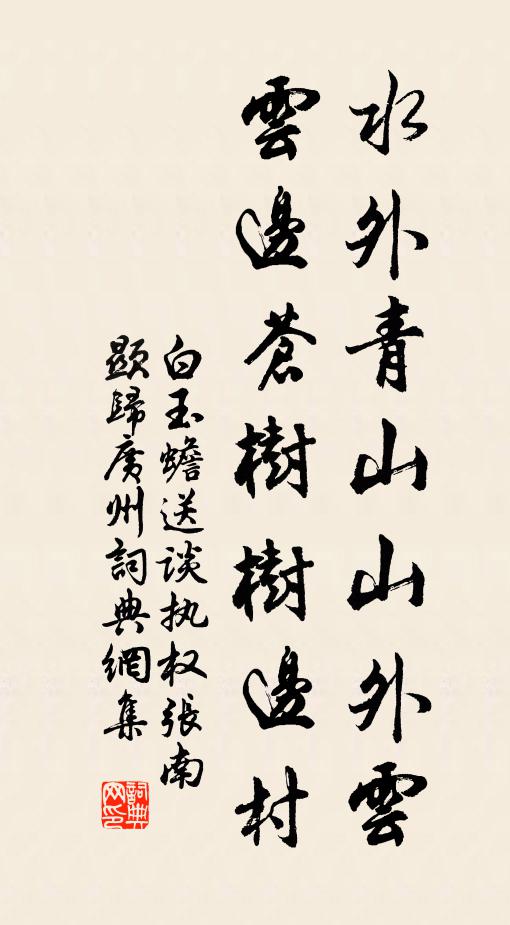 水外青山山外雲
雲邊蒼樹樹邊村
白玉蟾送谈执权張南
顯歸廣州詞典網集
詞典网印